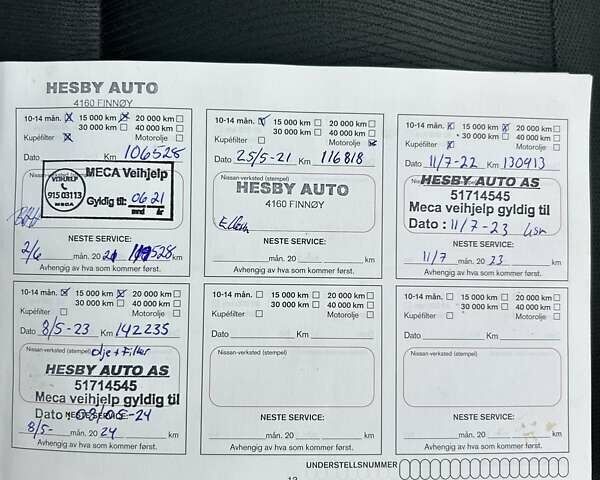 HESBY AUTO
4160 FINNØY
10-14 mån. ☒ 15 000 km ☒ 20 000 km ☐
30 000 km ☐ 40 000 km ☐
Kupéfilter ☒ Motorolje ☐
Dato Km 106528
Nissan-verksted (stempel)
MECA Veihjelp
VEIHJELP
915 03113
MECA
Gyldig til: 06 21
mnd år
NESTE SERVICE:
2/6 mån. 20 21 km
Avhengig av hva som kommer først.
10-14 mån. ☒ 15 000 km ☐ 20 000 km ☐
30 000 km ☐ 40 000 km ☐
Kupéfilter ☐ Motorolje ☒
Dato 25/5-21 Km 116818
Nissan-verksted (stempel)
HESBY AUTO
4160 FINNØY
NESTE SERVICE:
mån. 20 km
Avhengig av hva som kommer først.
10-14 mån. ☒ 15 000 km ☒ 20 000 km ☐
30 000 km ☐ 40 000 km ☐
Kupéfilter ☒ Motorolje ☐
Dato 11/7-22 Km 130913
Nissan-verksted (stempel)
HESBY AUTO AS
51714545
Meca veihjelp gyldig til
Dato : 11/7-23
NESTE SERVICE:
11/7 mån. 20 23 km
Avhengig av hva som kommer først.
10-14 mån. ☒ 15 000 km ☒ 20 000 km ☐
30 000 km ☐ 40 000 km ☐
Kupéfilter ☐ Motorolje ☐
Dato 8/5-23 Km 142235
Nissan-verksted (stempel) olje+Filter
HESBY AUTO AS
51714545
Meca veihjelp gyldig til
Dato : 08-05-24
NESTE SERVICE:
8/5- mån. 20 24 km
Avhengig av hva som kommer først.
10-14 mån. ☐ 15 000 km ☐ 20 000 km ☐
30 000 km ☐ 40 000 km ☐
Kupéfilter ☐ Motorolje ☐
Dato Km
Nissan-verksted (stempel)
NESTE SERVICE:
mån. 20 km
Avhengig av hva som kommer først.
10-14 mån. ☐ 15 000 km ☐ 20 000 km ☐
30 000 km ☐ 40 000 km ☐
Kupéfilter ☐ Motorolje ☐
Dato Km
Nissan-verksted (stempel)
NESTE SERVICE:
mån. 20 km
Avhengig av hva som kommer først.
UNDERSTELLSNUMMER